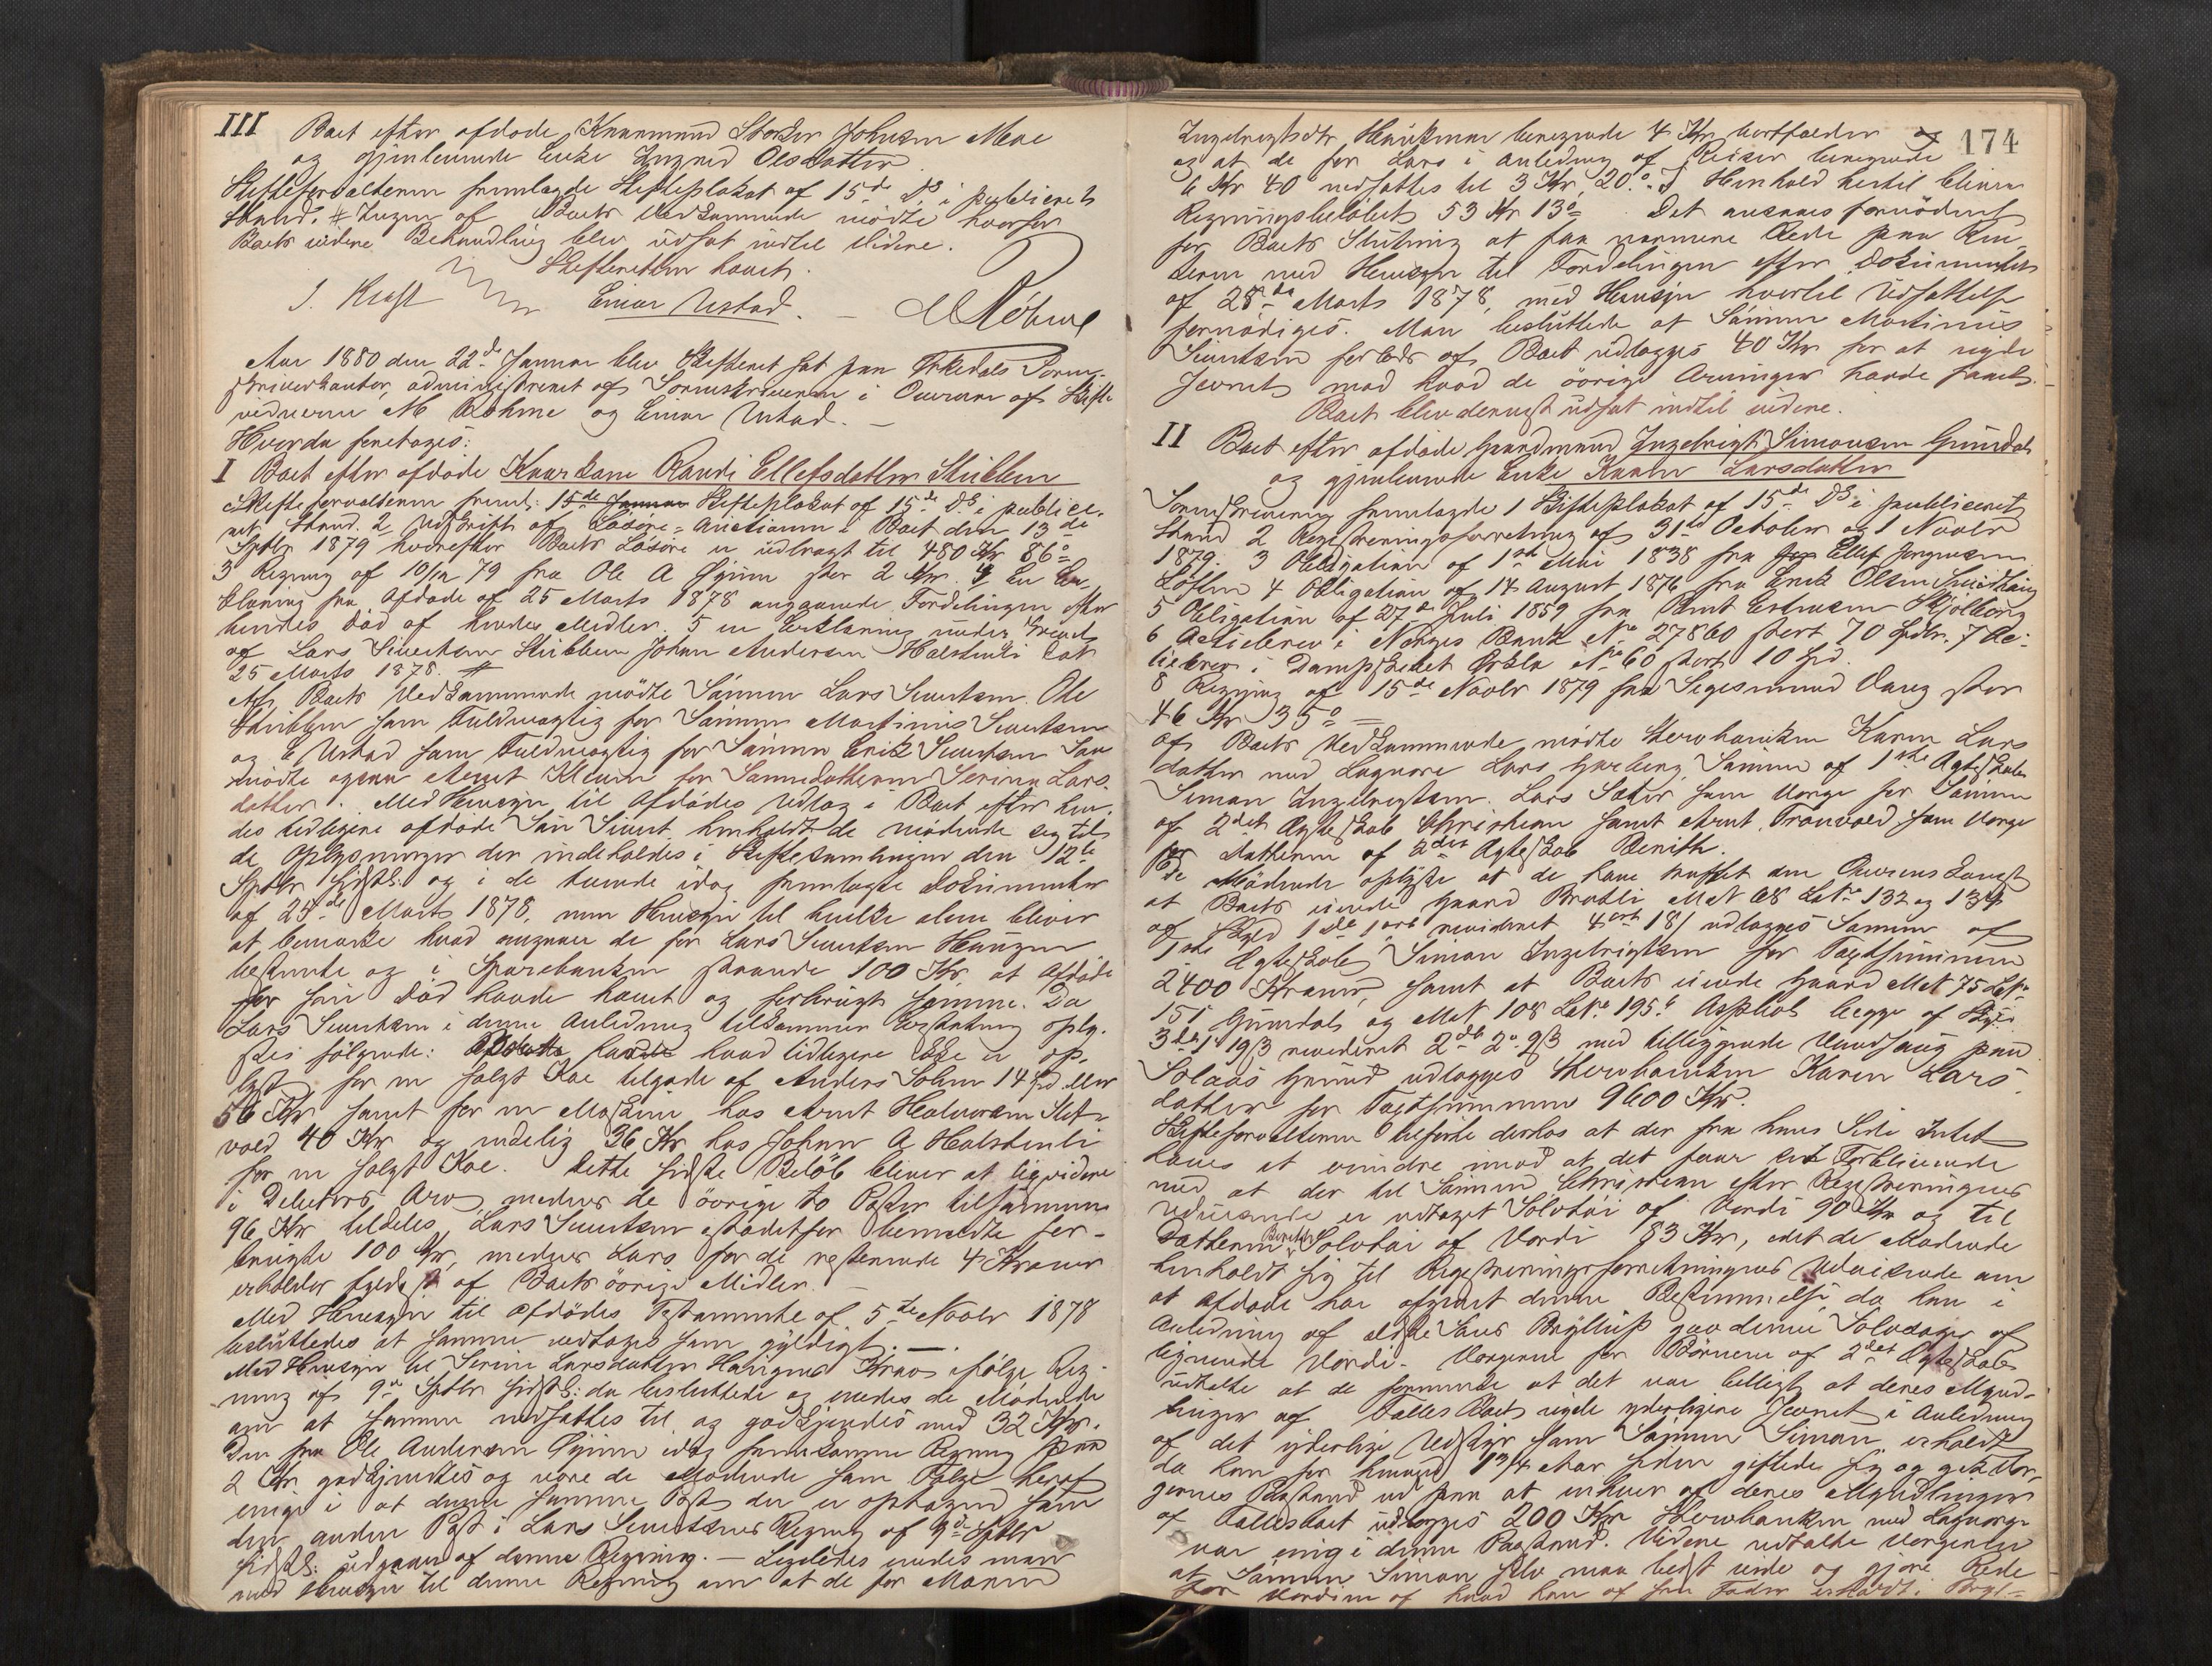 III Boet efter afdøde Kaarmand Størker Johnsen Moe
og gjenlevende Enke Ingrid Olsdatter
Skifteforvalteren fremlagde Skifteplakat af 15de ds i publiceret
Stand. # Ingen af Boets Vedkommende mødte hvorfor
Boets videre Behandling blev udsat indtil Videre.
Skifteretten hævet.
J. Kraft Einar Ustad. – M Röhme
Aar 1880 den 22de Januar blev Skifteret sat paa Orkedals Soren-
skriverkontor, administreret af Sorenskriveren i Overvær af Skifte
vidnerne M Röhme og Einar Ustad. –
Hvorda foretoges:
I Boet efter afdøde Kaarkone Randi Ellefsdatter Stubben
Skifteforvalteren freml: 15de Januar Skifteplakat af 15de ds i publice-
ret Stand. 2 Udskrift af Løsøre-Auctionen i Boet den 13de
Septbr 1879 hvorefter Boets Løsøre er udbragt til 480 Kr 86 ø
3 Regning af 10/12 79 fra Ole A Øyum stor 2 Kr. 4 En Er
klæring fra Afdøde af 25 Marts 1878 angaaende Fordelingen efter
hendes Død af hendes Midler. 5 en Erklæring
af Lars Sivertsen Stubben Johan Andersen Holstenli dat
25 Marts 1878. #
Af Boets Vedkommende mødte Sønnen Lars Sivertsen. Ole
Stubben som Fuldmægtig for Sønnen Martinus Sivertsen
og E Ustad som Fuldmægtig for Sønnen Erik Sivertsen
mødte ogsaa Arnt for Sønnedatteren Serina Lars-
datter. Med Hensyn til Afdødes Udlæg i Boet efter hen-
des tidligere afdøde Søn Sivert henholdt de mødende sig til
de Oplysninger der indeholdes i Skiftesamlingen den 12te
Septbr sidstl: og i de tvende idag fremlagte Dokumenter
af 25de Marts 1878, med Hensyn til hvilke alene bliver
at bemærke hvad angaaer de for Lars Sivertsen
bestemte og i Sparebanken staaende 100 Kr, at Afdøde
før sin Død havde hævet og forbrugt samme. Da
Lars Sivertsen i denne Anledning tilkommer Erstatning oply-
stes følgende: hvad tidligere ikke er op-
lyst for en solgt Koe tilgode af Anders Solem 14 Spd. eller
56 Kr samt for en Maskine hos Arnt Halvorsen Slet-
vold 40 Kr og endelig 36 Kr hos Johan A Holstenli
for en solgt Koe. Dette sidste Beløb bliver at liqvidere
i Debitors Arv, medens de øvrige to Poster tilsammen
96 Kr tildeles Lars Sivertsen istedetfor bemeldte for-
brugte 100 Kr, medens Lars for de resterende 4 Kroner
erholder Fyldest af Boets øvrige Midler. –
Med Hensyn til Afdødes Testamente af 5te Novbr 1878
besluttedes at samme modtages som gyldigt. –
Med Hensyn til Serine Larsdatter Haugens Krav ifølge Reg-
ning af 9de Septbr sidstl: da besluttede og enedes de Mødende
om at samme nedsattes til og godkjendtes med 32 Kr.
Den fra Ole Andersen Øyum idag fremkomne Regning paa
2 Kr godkjendtes og vare de Mødende som Følge heraf
enige i at denne samme Post der er optagen som
den anden Post i Lars Sivertsens Regning af 9de Septbr
sidstl: udgaaer af denne Regning. – Ligeledes enedes man
med Hensyn til denne Regning om at de for Maren
174
Ingebrigtsdtr beregnede 4 Kr bortfalder og
og at de for Lars i Anledning af Reiser beregnede
6 Kr 40 nedsattes til 3 Kr 20 ø. I Henhold hertil bliver
Regningsbeløbet 53 Kr 13 ø. Det ansees fornødent
for Boets Slutning at faa nærmere Rede paa
med Hensyn til Fordelingen efter Dokumentet
af 25de Marts 1878, med Hensyn hvortil Udsættelse
fornødiges. Man besluttede at Sønnen Martinus
Sivertsen forlods af Boet udlægges 40 Kr for at nyde
Jevnet mod hvad de øvrige Arvinger havde faaet.
Boet blev dernæst udsat indtil videre.
II Boet efter afdøde Gaardmand Ingebrigt Simonsen Grindal
og gjenlevende Enke Karen Larsdatter
Sorenskriveren fremlagde 1 Skifteplakat af 15de ds i publiceret
Stand 2 Registreringsforretning af 31te October og 1 Novbr
1879. 3 Obligation af 1ste Mai 1838 fra Ellef Jørgensen
Løften 4 Obligation af 14 August 1876 fra Erik Olsen
5 Obligation af 27de Juli 1859 fra Arnt Estensen
6 Actiebrev i Norges Bank No 27860 stort 70 Spdlr. 7 Ac-
tiebrev i Dampskibet Orkla No 60 stort 10 Spd.
8 Regning af 15de Novbr 1879 fra Segesmund Vang stor
46 Kr 35 ø =
Af Boets Vedkommende mødte Stervboenken Karen Lars
datter med Lagværge Lars Garberg, Sønnen af 1ste Ægteskab
Simon Ingebrigtsen. Lars Sæter som Værge for Sønnen
af 2det Ægteskab Christian samt Arnt Tronvold som Værge
for Datteren af 2det Ægteskab Berith.
De Mødende oplyste at de have truffet den Overenskomst
at Boets eiende Gaard Bratli Mat 68 LNo 132 og 134
af Skyld 1 Dl 1 ort revideret 4 ort 18 ß udlægges Sønnen af
1ste Ægteskab Simon Ingebrigtsen for Taxtsummen
2400 Kroner, samt at Boets eiende Gaard Mat 75 LNo
151 Grindal og Mat 108 LNo 195 b Aspliob begge af Skyld
3 Dl 1 19 ß revideret 2 Dl 2 o 9 ß med tilliggende Vandsaug paa
Solaas Grund udlægges Stervboenken Karen Lars-
datter for Taxtsummen 9600 Kr.
Skifteforvalteren tilførte derhos at der fra hans Side Intet
haves at erindre imod at det faar sit Forblivende
med at der til Sønnen Christian efter Registreringens
Udvisende er udtaget Sølvtøi af Værdi 90 Kr og til
Datteren Berith Sølvtøi af Værdi 83 Kr, idet de Mødende
henholdt sig til Registreringsforretningens Udvisende om
at Afdøde har afgivet denne Bestemmelse, da han i
Anledning af ældste Søns Bryllup gav denne Sølvsager af
lignende Værdi. Værgerne for Børnene af 2det Ægteskab
udtalte at de formente at det var billigt at deres Mynd-
linger af Fælles Boet nyde yderligere Jevnet i Anledning
af det yderlige Udstyr som Sønnen Simon erholdt
da han for henved 13/4 Aar siden giftede sig og gik Vær-
gernes Paastand ud paa at enhver af deres Myndlinger
af Fællesboet udlægges 200 Kr Stervboenken med Lagværge
var enig i denne Paastand. Videre udtalte Værgerne
at Sønnen Simon selv maa bedst vide og gjøre Rede
for Værdien af hvad han af sin Fader erholdt i Bryl-